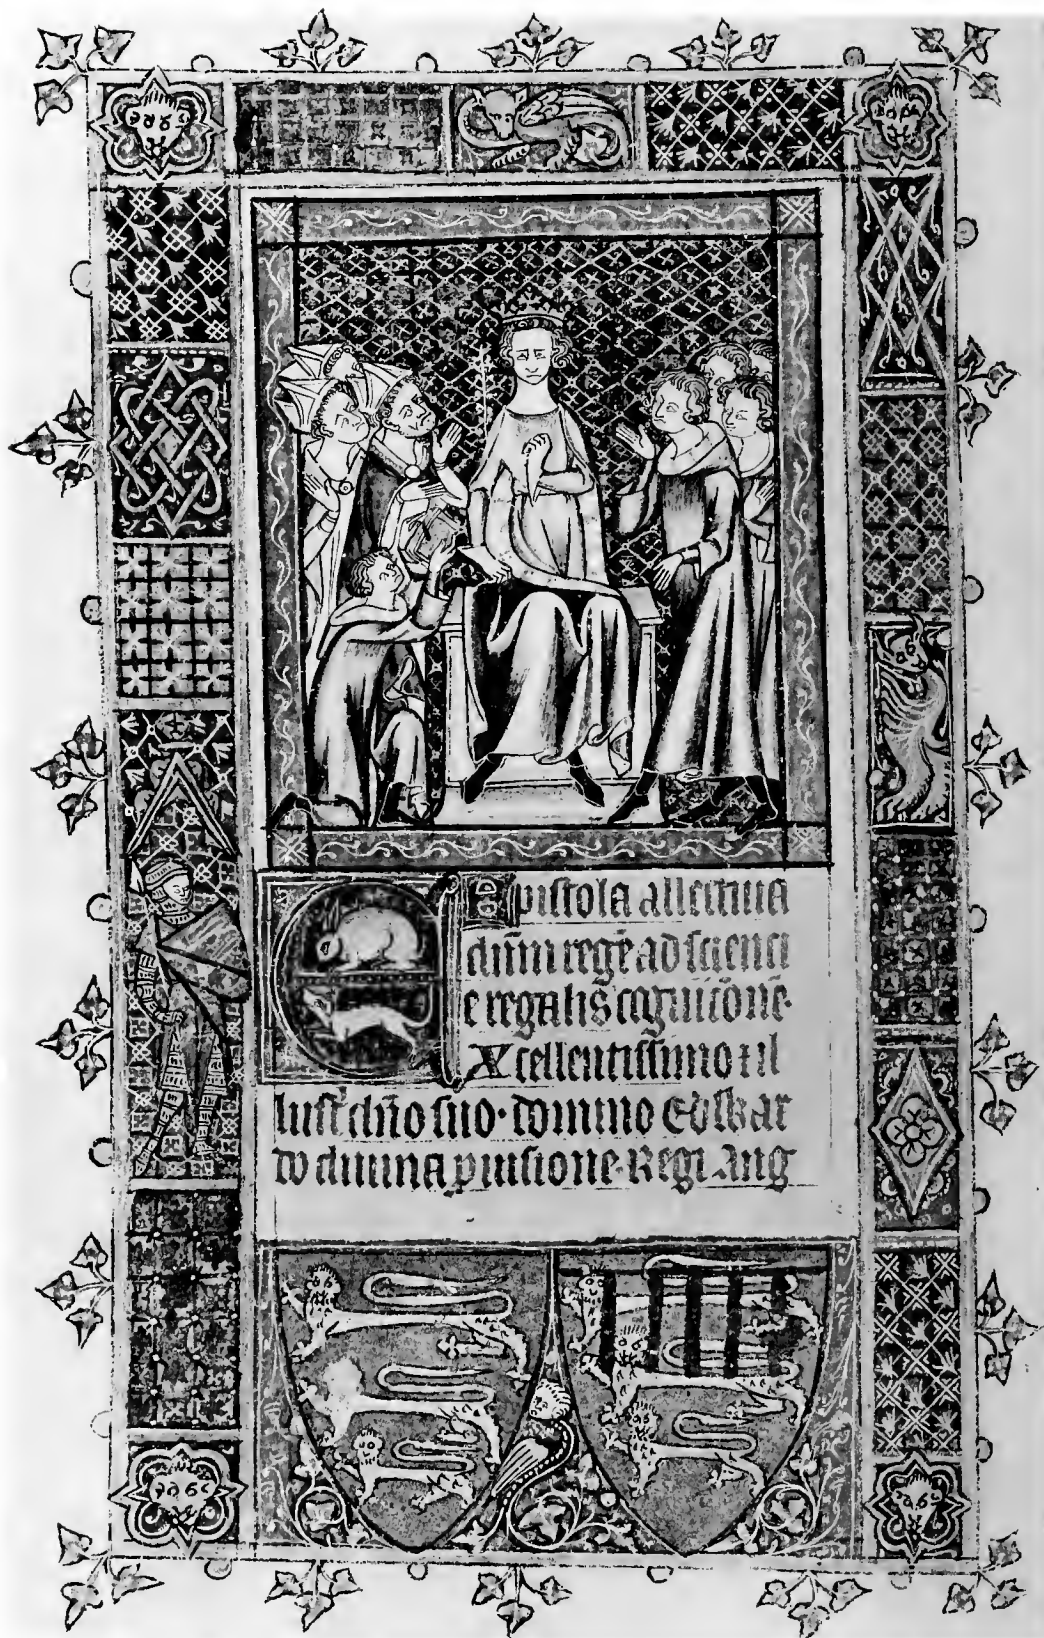 Epistola allectiua
dn̄m regē ad scienci
e regalis cognicōne·
EXcellentissimo ⁊ il
lustr̄ dn̄o suo· domino Edwar
do diuina ꝓuisione· Regi Ang